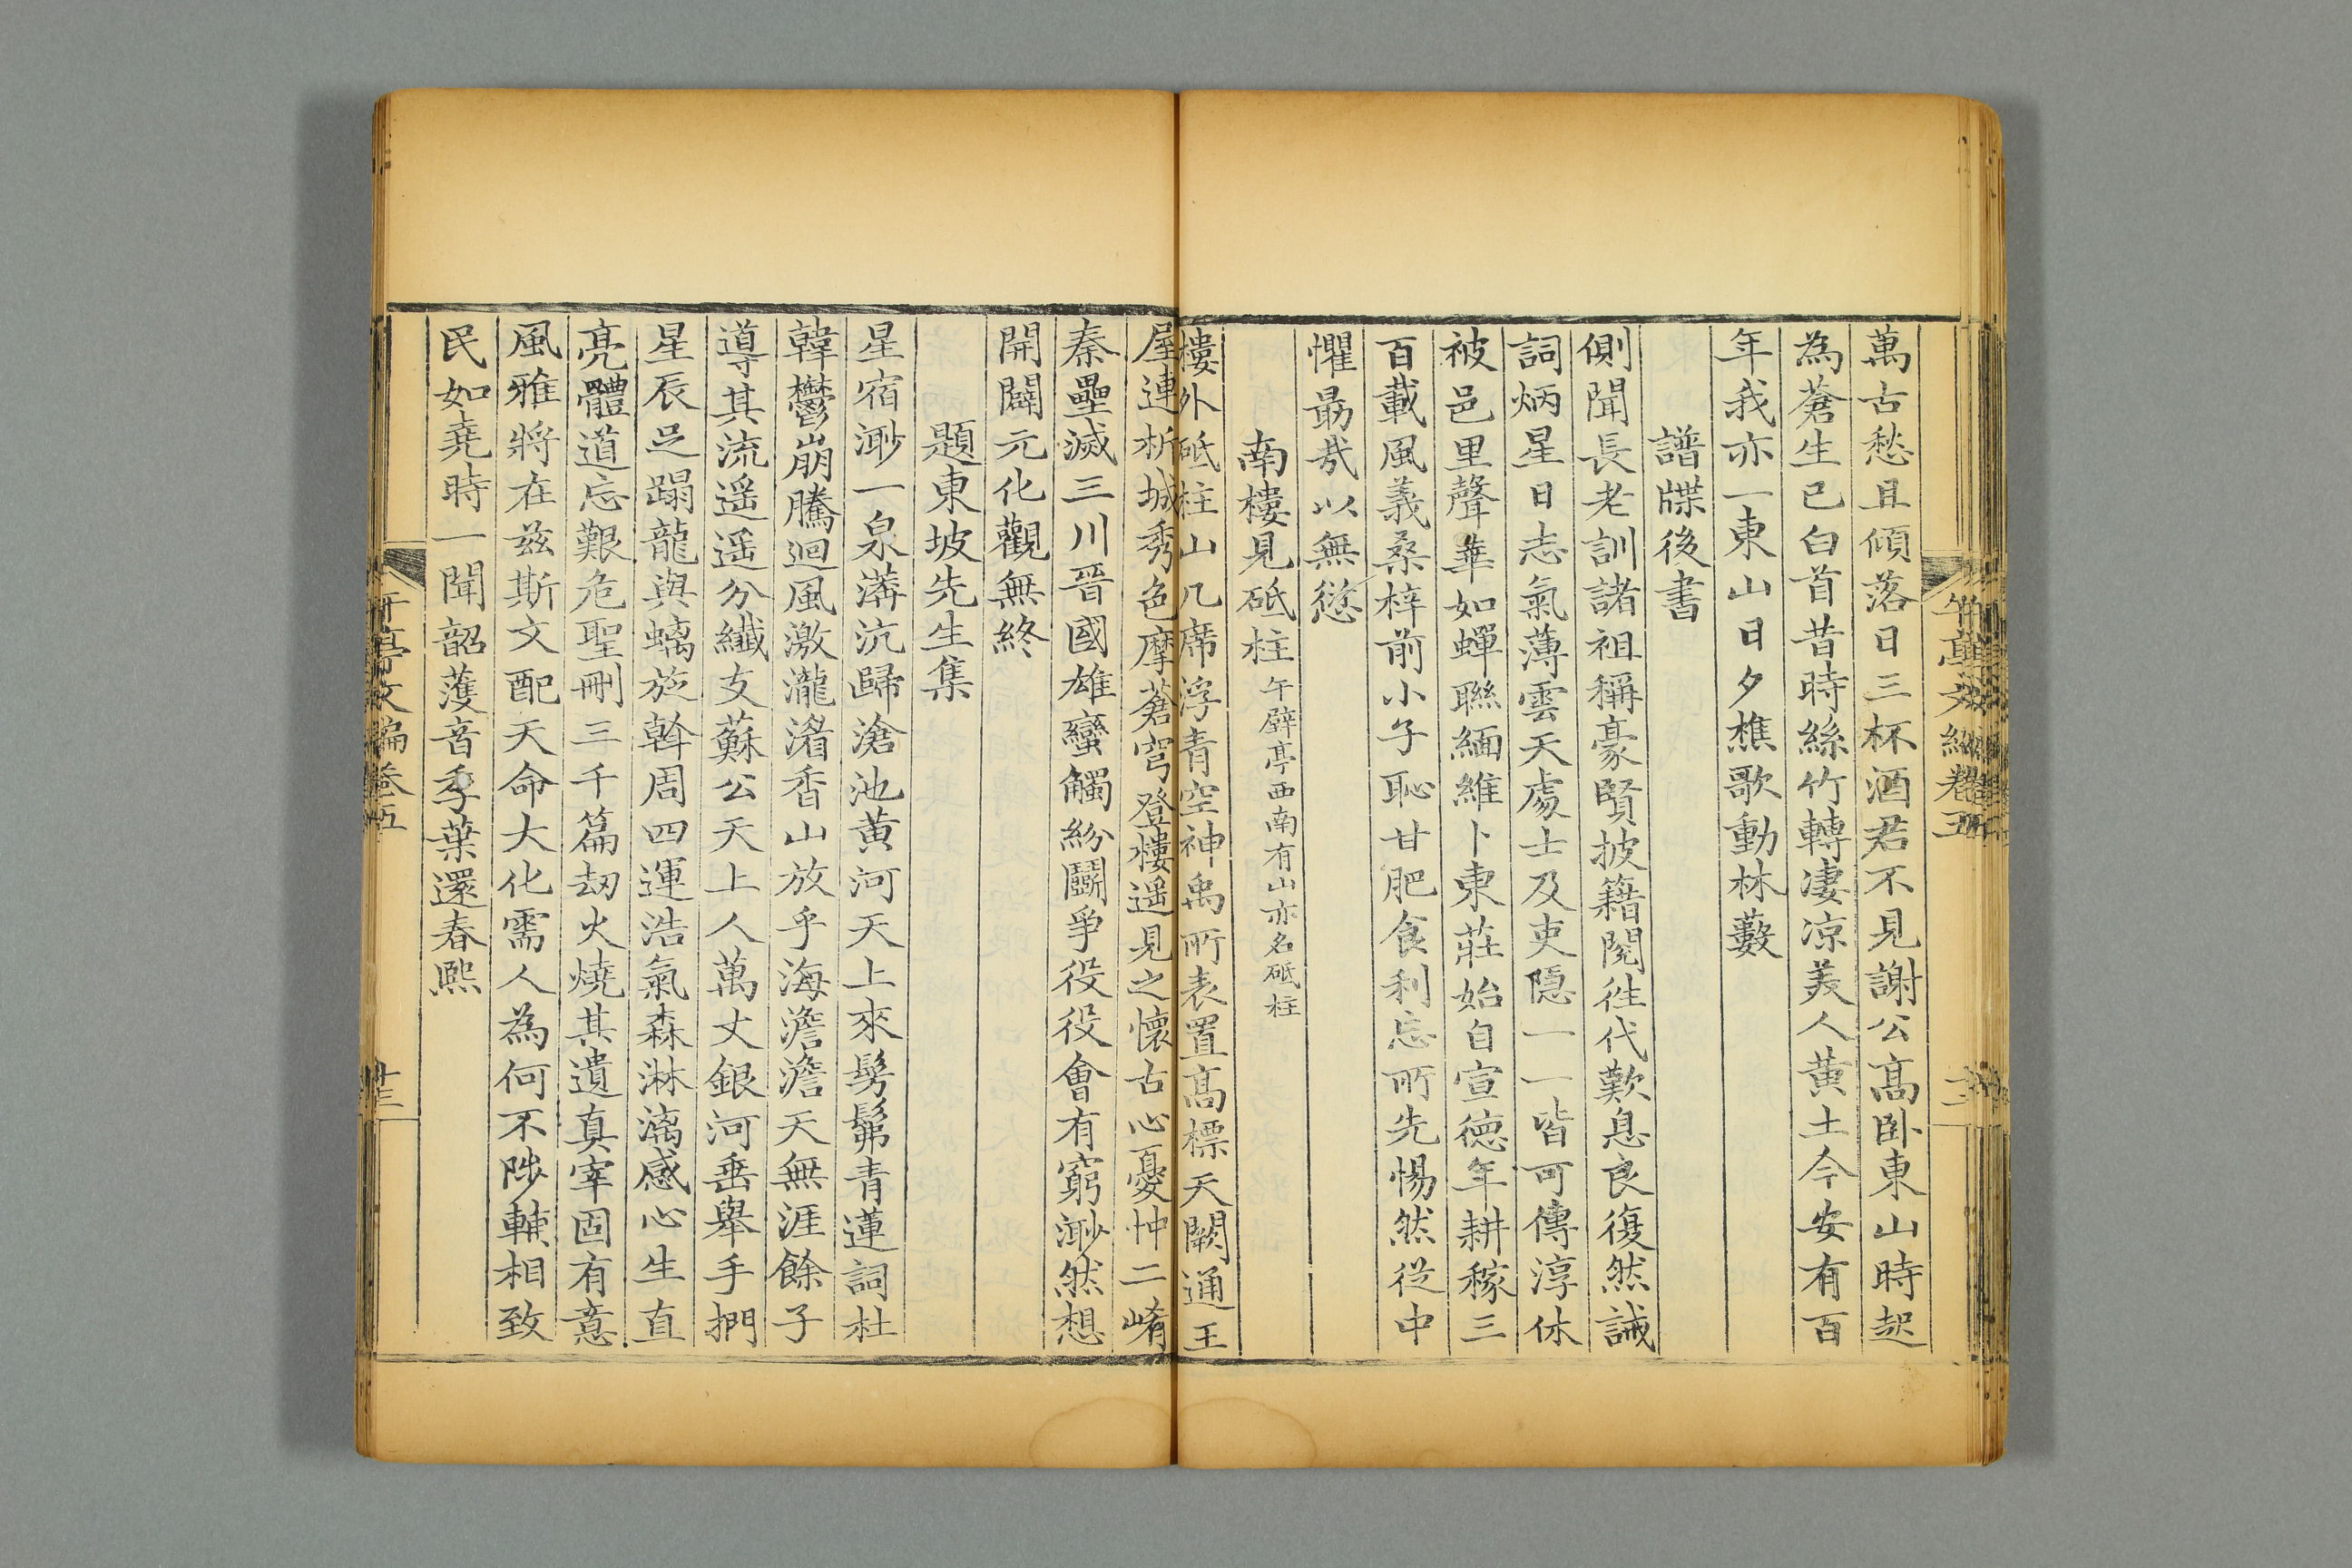 萬古愁且傾落日三杯酒君不見謝公高卧東山時起
為蒼生已白首昔時絲竹轉凄凉美人黄土今安有百
年我亦一東山日夕樵歌動林藪
譜牒後書
側聞長老訓諸祖稱豪賢披籍閱徃代歎息良復然誡
詞炳星日志氣薄雲天處士及吏隱一一皆可傳淳休
被邑里聲華如蟬聯緬維卜東莊始自宣德年耕稼三
百載風義桑梓前小子恥甘肥食利忘所先惕然從中
懼勗哉以無愆
南樓見砥柱午壁亭西南有山亦名砥柱
樓外砥柱山几席浮青空神禹所表置高標天闕通王
屋連析城秀色摩蒼穹登樓遥見之懷古心憂忡二崤
秦壘滅三川晉國雄蠻觸紛鬬爭役役會有窮渺然想
開闢元化觀無終
題東坡先生集
星宿渺一泉漭沆歸滄池黄河天上來髣髴青蓮詞杜
韓鬱崩騰迴風激瀧瀦香山放乎海澹澹天無涯餘子
導其流遥遥分纖支蘇公天上人萬丈銀河垂舉手捫
星辰足蹋龍與螭旋斡周四運浩氣森淋漓感心生直
亮體道忘艱危聖刪三千篇刼火燒其遺真宰固有意
風雅將在兹斯文配天命大化需人為何不陟輔相致
民如堯時一聞韶頀音季葉還春熙
午亭文編卷五